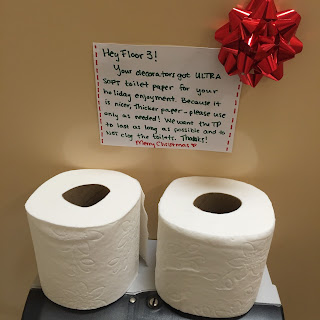 Hey Floor 3!
Your decorators got ULTRA
SOFT toilet paper for your
holiday enjoyment. Because it
is nicer, thicker paper - please use
only as needed! We want the TP
to last as long as possible and to
not clog the toilets. Thanks!
Merry Christmas ♡